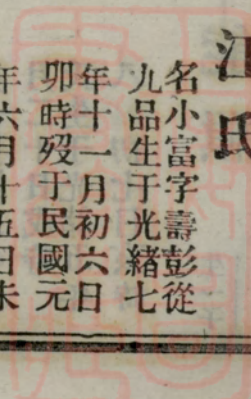 江氏
名小富字壽彭從
九品生于光緒七
年十一月初六日
卯時歿于民國元
年六月十五日未